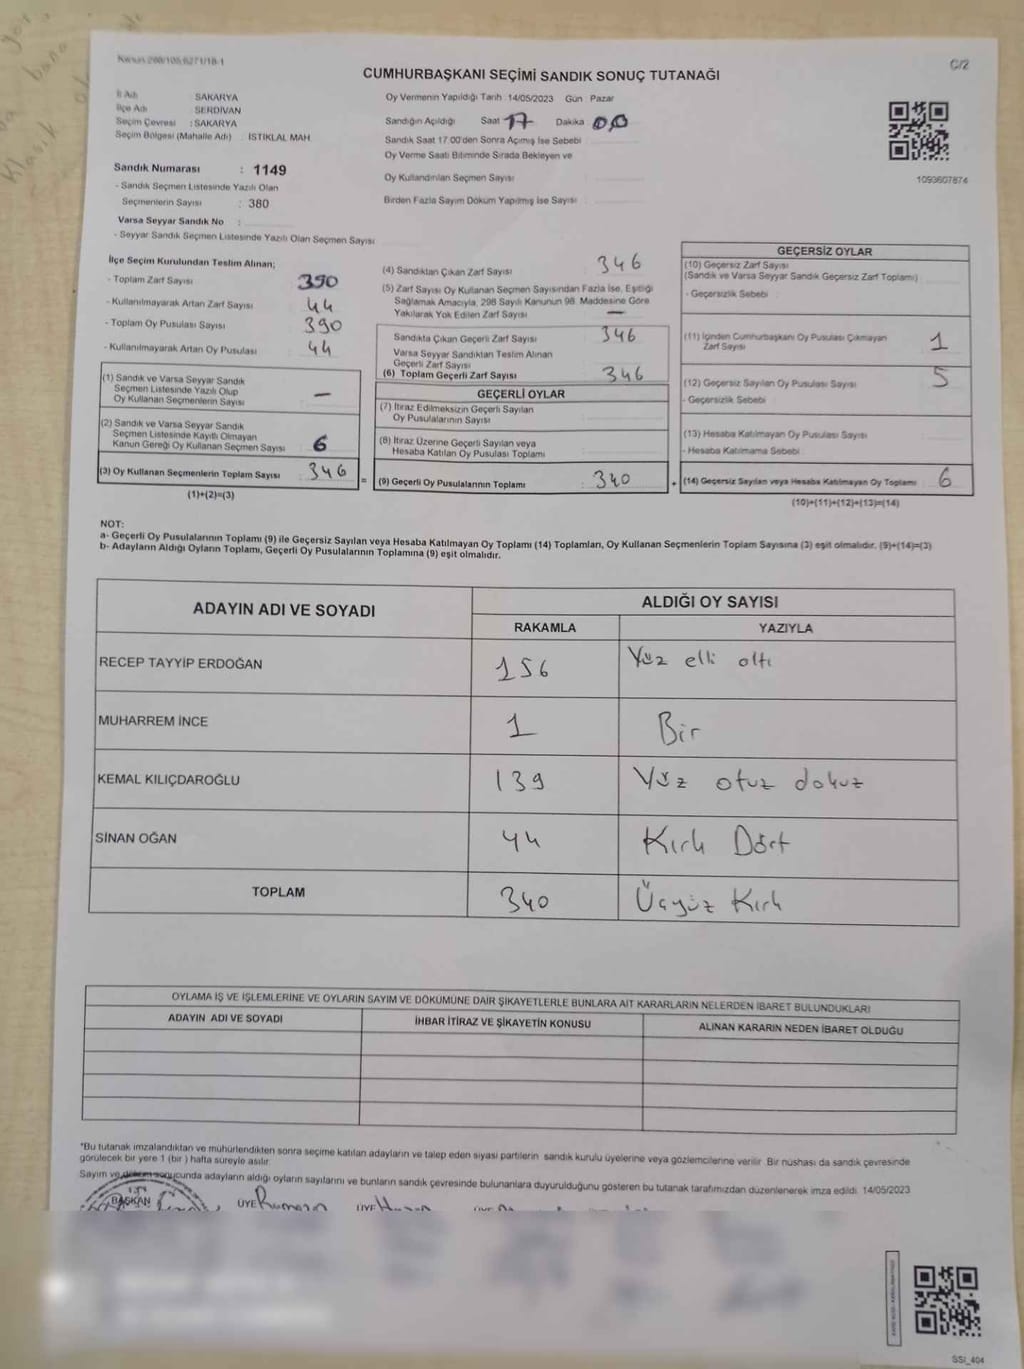 C/2
CUMHURBAŞKANI SEÇİMİ SANDIK SONUÇ TUTANAĞI
İl Adı : SAKARYA
İlçe Adı : SERDİVAN
Seçim Çevresi : SAKARYA
Seçim Bölgesi (Mahalle Adı) : İSTİKLAL MAH.
Sandık Numarası : 1149
- Sandık Seçmen Listesinde Yazılı Olan
Seçmenlerin Sayısı : 380
Varsa Seyyar Sandık No :
- Seyyar Sandık Seçmen Listesinde Yazılı Olan Seçmen Sayısı
Oy Vermenin Yapıldığı Tarih 14/05/2023 Gün Pazar
Sandığın Açıldığı Saat 17 Dakika 00
Sandık Saat 17:00'den Sonra Açılmış İse Sebebi
Oy Verme Saati Bitiminde Sırada Bekleyen ve
Oy Kullandırılan Seçmen Sayısı
Birden Fazla Sayım Döküm Yapılmış İse Sayısı
1093607874
İlçe Seçim Kurulundan Teslim Alınan;
- Toplam Zarf Sayısı 390
- Kullanılmayarak Artan Zarf Sayısı 44
- Toplam Oy Pusulası Sayısı 390
- Kullanılmayarak Artan Oy Pusulası 44
(1) Sandık ve Varsa Seyyar Sandık
Seçmen Listesinde Yazılı Olup
Oy Kullanan Seçmenlerin Sayısı —
(2) Sandık ve Varsa Seyyar Sandık
Seçmen Listesinde Kayıtlı Olmayan
Kanun Gereği Oy Kullanan Seçmen Sayısı 6
(3) Oy Kullanan Seçmenlerin Toplam Sayısı : 346 =
(1)+(2)=(3)
(4) Sandıktan Çıkan Zarf Sayısı 346
(5) Zarf Sayısı Oy Kullanan Seçmen Sayısından Fazla İse, Eşitliği
Sağlamak Amacıyla, 298 Sayılı Kanunun 98. Maddesine Göre
Yakılarak Yok Edilen Zarf Sayısı —
Sandıkta Çıkan Geçerli Zarf Sayısı 346
Varsa Seyyar Sandıktan Teslim Alınan
Geçerli Zarf Sayısı
(6) Toplam Geçerli Zarf Sayısı 346
GEÇERLİ OYLAR
(7) İtiraz Edilmeksizin Geçerli Sayılan
Oy Pusulalarının Sayısı
(8) İtiraz Üzerine Geçerli Sayılan veya
Hesaba Katılan Oy Pusulası Toplamı
(9) Geçerli Oy Pusulalarının Toplamı : 340 +
GEÇERSİZ OYLAR
(10) Geçersiz Zarf Sayısı
(Sandık ve Varsa Seyyar Sandık Geçersiz Zarf Toplamı)
- Geçersizlik Sebebi
(11) İçinden Cumhurbaşkanı Oy Pusulası Çıkmayan
Zarf Sayısı 1
(12) Geçersiz Sayılan Oy Pusulası Sayısı 5
- Geçersizlik Sebebi
(13) Hesaba Katılmayan Oy Pusulası Sayısı
- Hesaba Katılmama Sebebi
(14) Geçersiz Sayılan veya Hesaba Katılmayan Oy Toplamı : 6
(10)+(11)+(12)+(13)=(14)
NOT:
a- Geçerli Oy Pusulalarının Toplamı (9) ile Geçersiz Sayılan veya Hesaba Katılmayan Oy Toplamı (14) Toplamları, Oy Kullanan Seçmenlerin Toplam Sayısına (3) eşit olmalıdır. (9)+(14)=(3)
b- Adayların Aldığı Oyların Toplamı, Geçerli Oy Pusulalarının Toplamına (9) eşit olmalıdır.
ADAYIN ADI VE SOYADI ALDIĞI OY SAYISI
RAKAMLA YAZIYLA
RECEP TAYYİP ERDOĞAN 156 Yüz elli altı
MUHARREM İNCE 1 Bir
KEMAL KILIÇDAROĞLU 139 Yüz otuz dokuz
SİNAN OĞAN 44 Kırk Dört
TOPLAM 340 Üçyüz Kırk
OYLAMA İŞ VE İŞLEMLERİNE VE OYLARIN SAYIM VE DÖKÜMÜNE DAİR ŞİKAYETLERLE BUNLARA AİT KARARLARIN NELERDEN İBARET BULUNDUKLARI
ADAYIN ADI VE SOYADI İHBAR İTİRAZ VE ŞİKAYETİN KONUSU ALINAN KARARIN NEDEN İBARET OLDUĞU
*Bu tutanak imzalandıktan ve mühürlendikten sonra seçime katılan adayların ve talep eden siyasi partilerin sandık kurulu üyelerine veya gözlemcilerine verilir. Bir nüshası da sandık çevresinde
görülecek bir yere 1 (bir) hafta süreyle asılır.
Sayım ve döküm sonucunda adayların aldığı oyların sayılarını ve bunların sandık çevresinde bulunanlara duyurulduğunu gösteren bu tutanak tarafımızdan düzenlenerek imza edildi. 14/05/2023
BAŞKAN ÜYE ÜYE ÜYE
SSİ_404